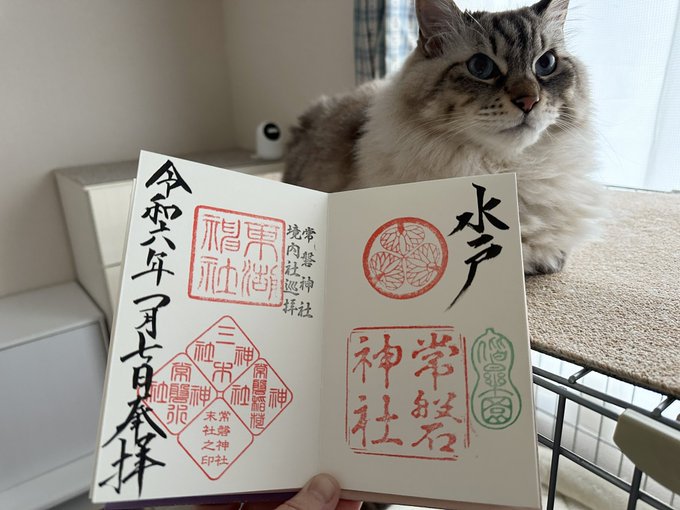 水戸
常磐
神社
偕楽園
常磐神社
境内社巡拝
東湖
神社
三木
神社
常磐稲荷
神社
常磐神社
末社之印
令和六年一月七日奉拝